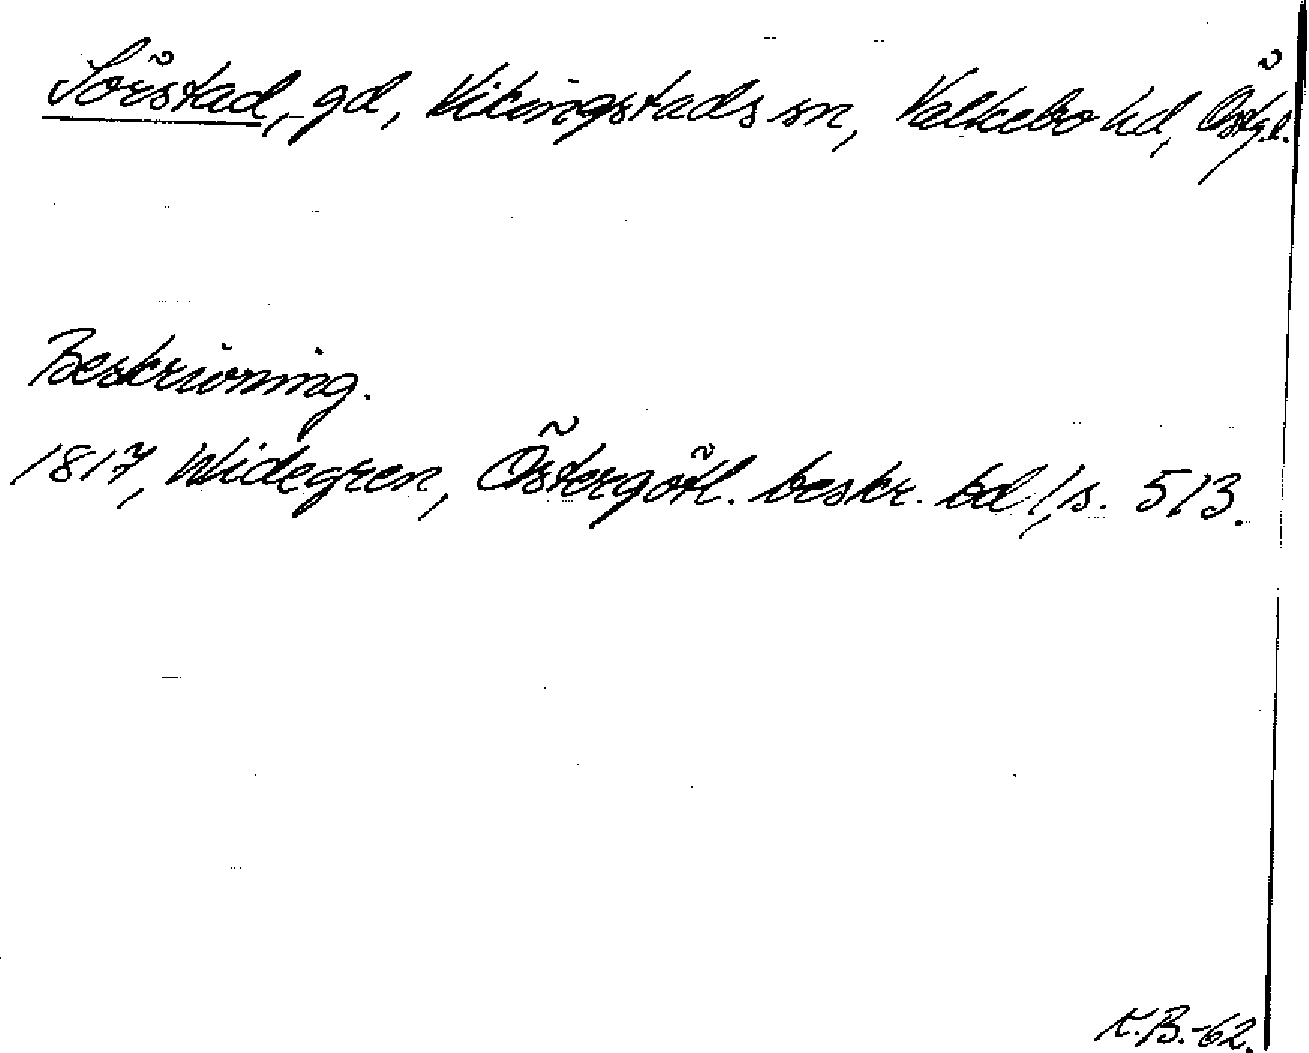 Sörstad, gd, Vikingstads sn, Valkebo hd, Östg.l.
Beskrivning.
1817, Widegren, Östergötl. beskr. bd 1, s. 513.
K.B.-62.